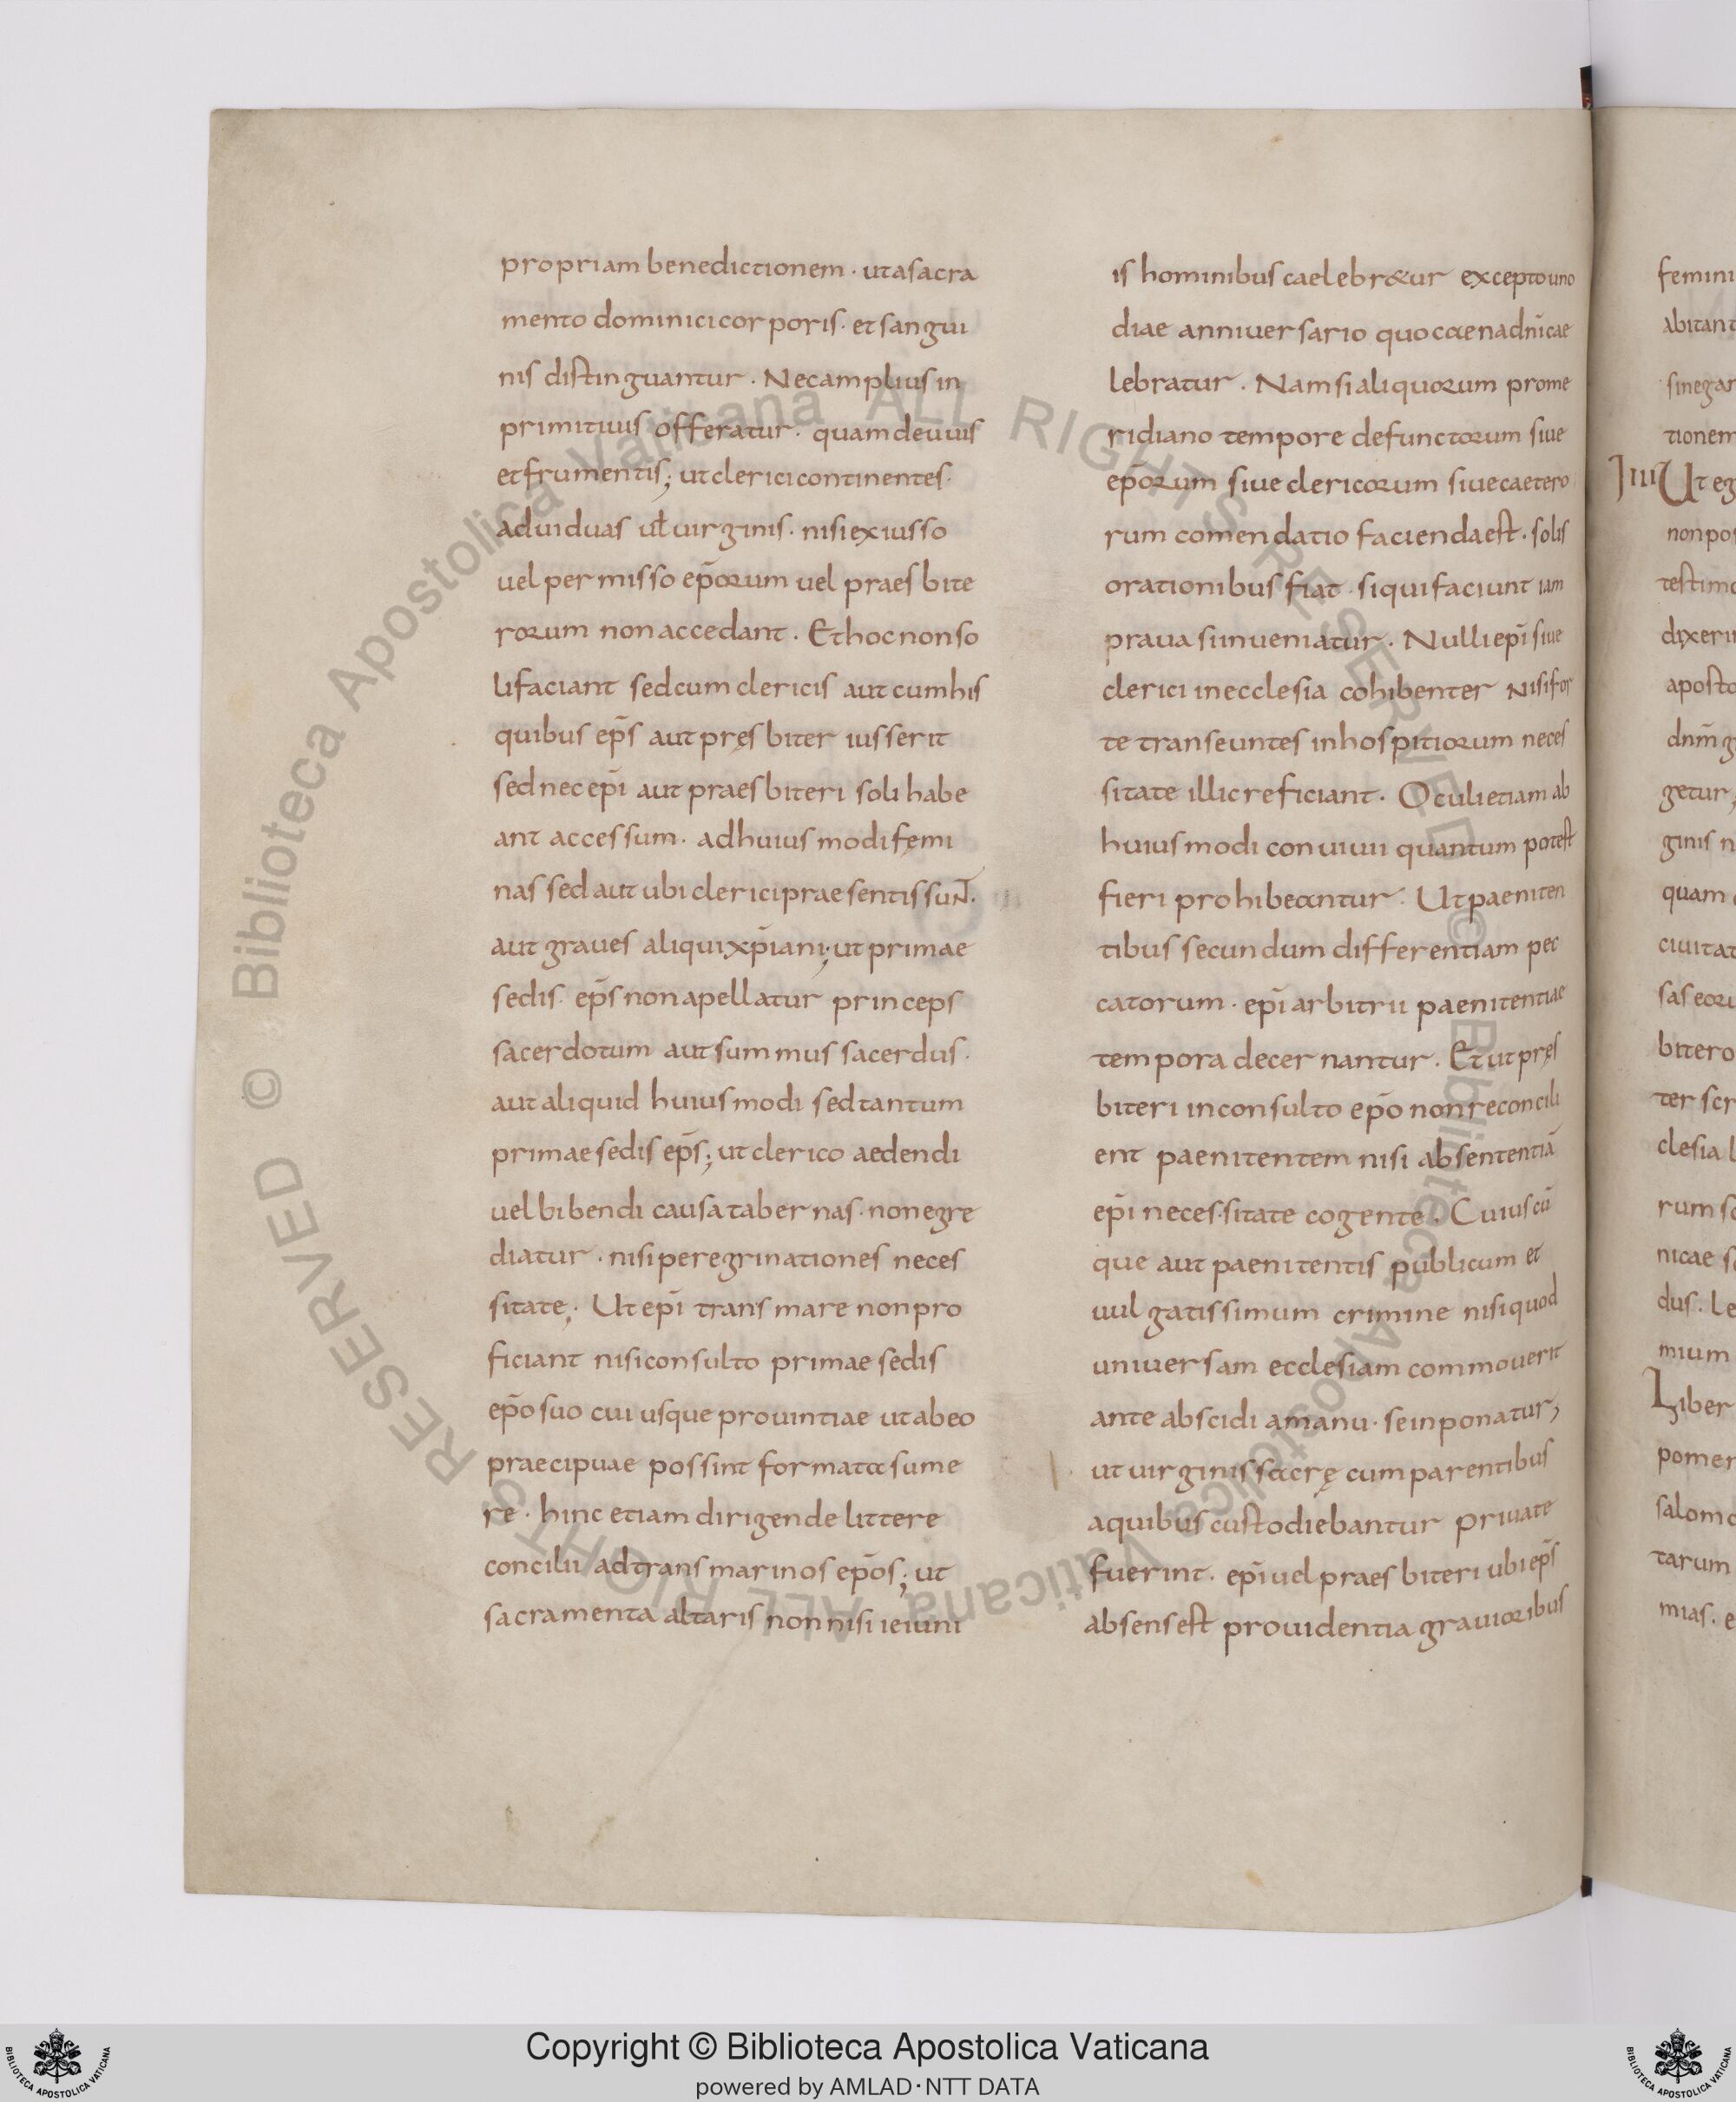 propriam benedictionem · ut a sacra
mento dominici corporis · et sangui
nis distinguantur · Nec amplius in
primitiuis offeratur · quam de uuis
et frumentis; ut clerici continentes ·
ad uiduas uł uirginis · nisi ex iusso
uel permisso ep̄orum uel praesbite
rorum non accedant · Et hoc non so
li faciant sed cum clericis aut cum his
quibus ep̄s aut pręsbiter iusserit
sed nec ep̄i aut praesbiteri soli habe
ant accessum · ad huiusmodi fęmi
nas sed aut ubi clerici praesentis suNT ·
aut graues aliqui xp̄iani; ut primae
sedis · ep̄s non apellatur princeps
sacerdotum aut summus sacerdus ·
aut aliquid huiusmodi sed tantum
primae sedis ep̄s; ut clerico aedendi
uel bibendi causa tabernas · non egre
diatur · nisi peregrinationes neces
sitate; Ut ep̄i trans mare non pro
ficiant nisi consulto primae sedis
ep̄o suo cui usque prouintiae ut ab eo
praecipuae possint formata sume
re · hinc etiam dirigende littere
concilii ad transmarinos ep̄os; ut
sacramenta altaris non nisi ieiuni
is hominibus caelebr&ur excepto uno
diae anniuersario quo caena dn̄i cae
lebratur · Nam si aliquorum prome
ridiano tempore defunctorum siue
ep̄orum siue clericorum siue caetero
rum comendatio facienda est · solis
orationibus fiat · si qui faciunt iam
praua si inueniatur · Nulli ep̄i siue
clerici in ecclesia cohibenter Nisi for
te transeuntes in hospitiorum neces
sitate illic reficiant · Oculi etiam ab
huiusmodi conuiuii quantum potest
fieri prohibeantur · Ut paeniten
tibus secundum differentiam pec
catorum · ep̄i arbitrii paenitentiae
tempora decernantur · Et ut pręs
biteri inconsulto ep̄o non reconcili
ent paenitentem nisi absententiā
ep̄i neces·sitate cogente · Cuius cū
que aut paenitentis publicum et
uulgatissimum crimine nisi quod
uniuersam ecclesiam commouerit
ante abscidi a manu · se inponatur;
ut uirginis sacrę cum parentibus
a quibus custodiebantur priuate
fuerint · ep̄i uel praesbiteri ubi ep̄s
absens est prouidentia grauioribus
femini
abitant
sine gar
tionem
IIII Ut eg
non pos
testimo
dixerin
aposto
dnm̄ g
getur;
ginis n
quam
ciuitat
sas eoru
bitero
ter scr
clesia l
rum sc
nicae s
dus · Le
mium
Liber
pomer
salomo
tarum
mias · e
Copyright © Biblioteca Apostolica Vaticana
powered by AMLAD·NTT DATA
BIBLIOTECA APOSTOLICA VATICANA
BIBLIOTECA APOSTOLICA VATICANA
© Biblioteca Apostolica Vaticana ALL RIGHTS RESERVED
© Biblioteca Apostolica Vaticana ALL RIGHTS RESERVED